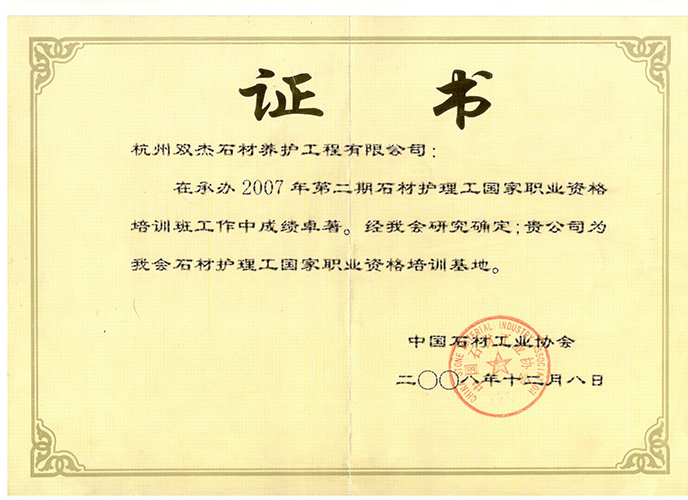 证书
杭州双杰石材养护工程有限公司：
在承办2007年第二期石材护理工国家职业资格
培训班工作中成绩卓著。经我会研究确定：贵公司为
我会石材护理工国家职业资格培训基地。
中国石材工业协会
二〇〇八年十二月八日
CHINA STONE MATERIAL INDUSTRY ASSOCIATION
中国石材工业协会